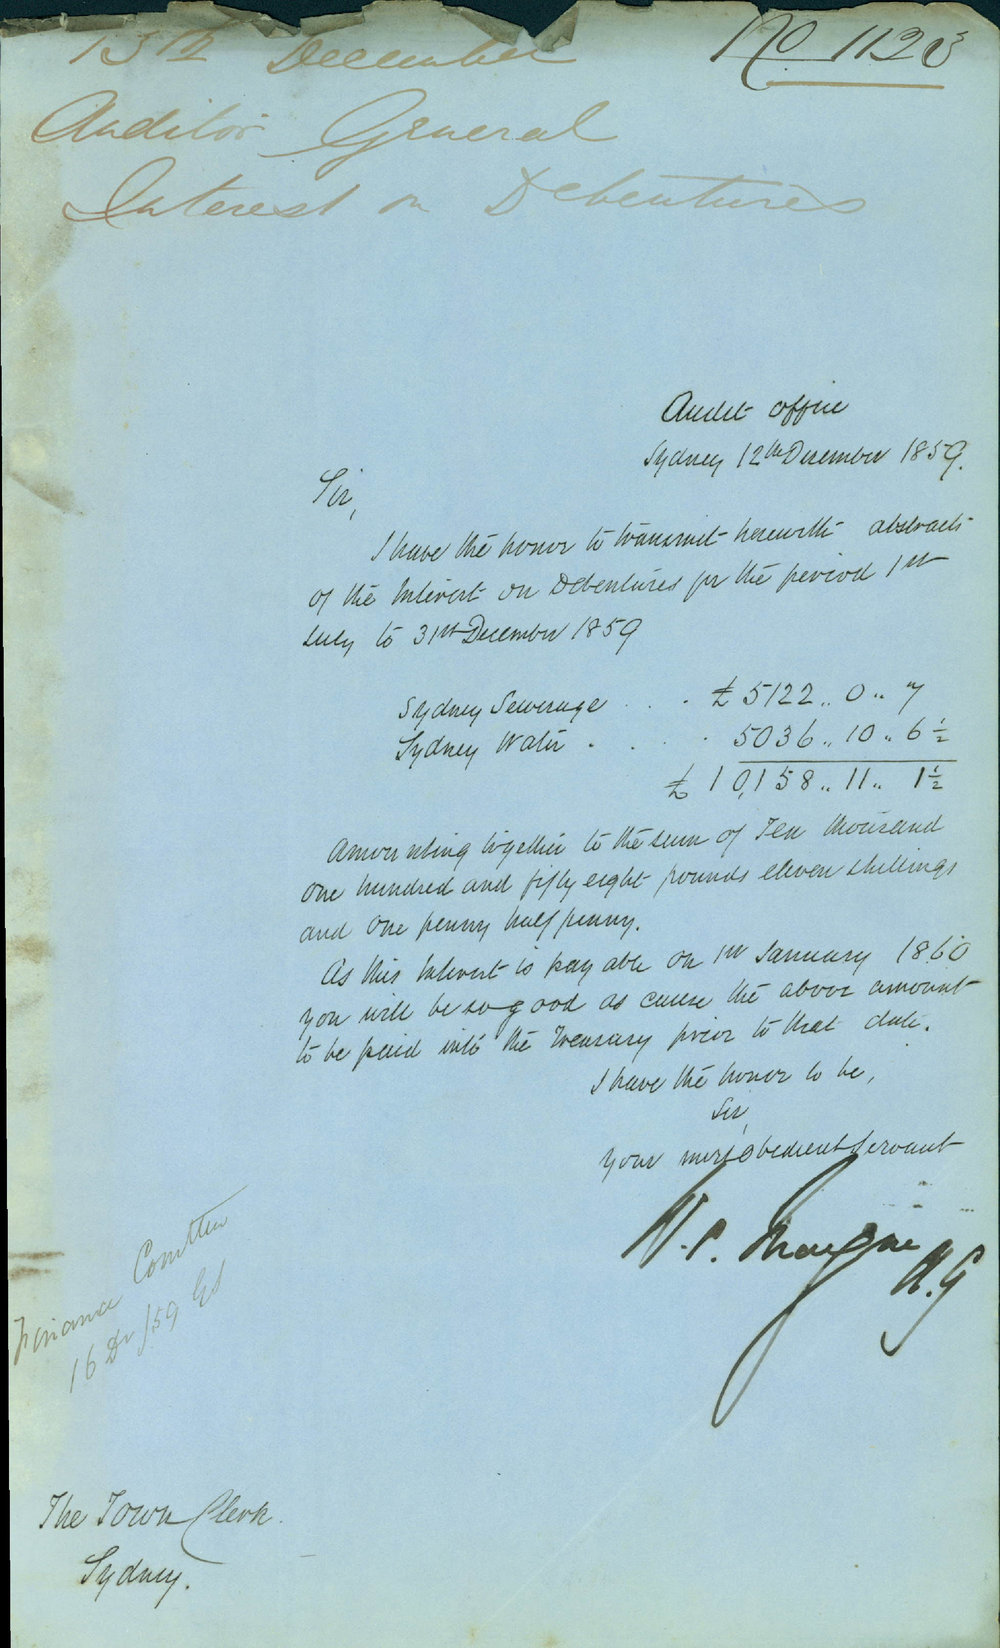 13th December
No 1123
Auditor General
Interest on Debentures
Audit office
Sydney 12th December 1859.
Sir,
I have the honor to transmit herewith abstracts
of the Interest on Debentures for the period 1st
July to 31st December 1859
Sydney Sewerage . . . £ 5122 .. 0 .. 7
Sydney Water . . . . 5036 .. 10 .. 6 ½
£ 10,158 .. 11 .. 1 ½
Amounting together to the sum of Ten thousand
one hundred and fifty eight pounds eleven shillings
and one penny half penny.
As this Interest is payable on 1st January 1860
you will be so good as cause the above amount
to be paid into the Treasury prior to that date.
I have the honor to be,
Sir,
Your most obedient Servant
W. C.
A.G
Finance Comttee
16 Dr /59
The Town Clerk.
Sydney.